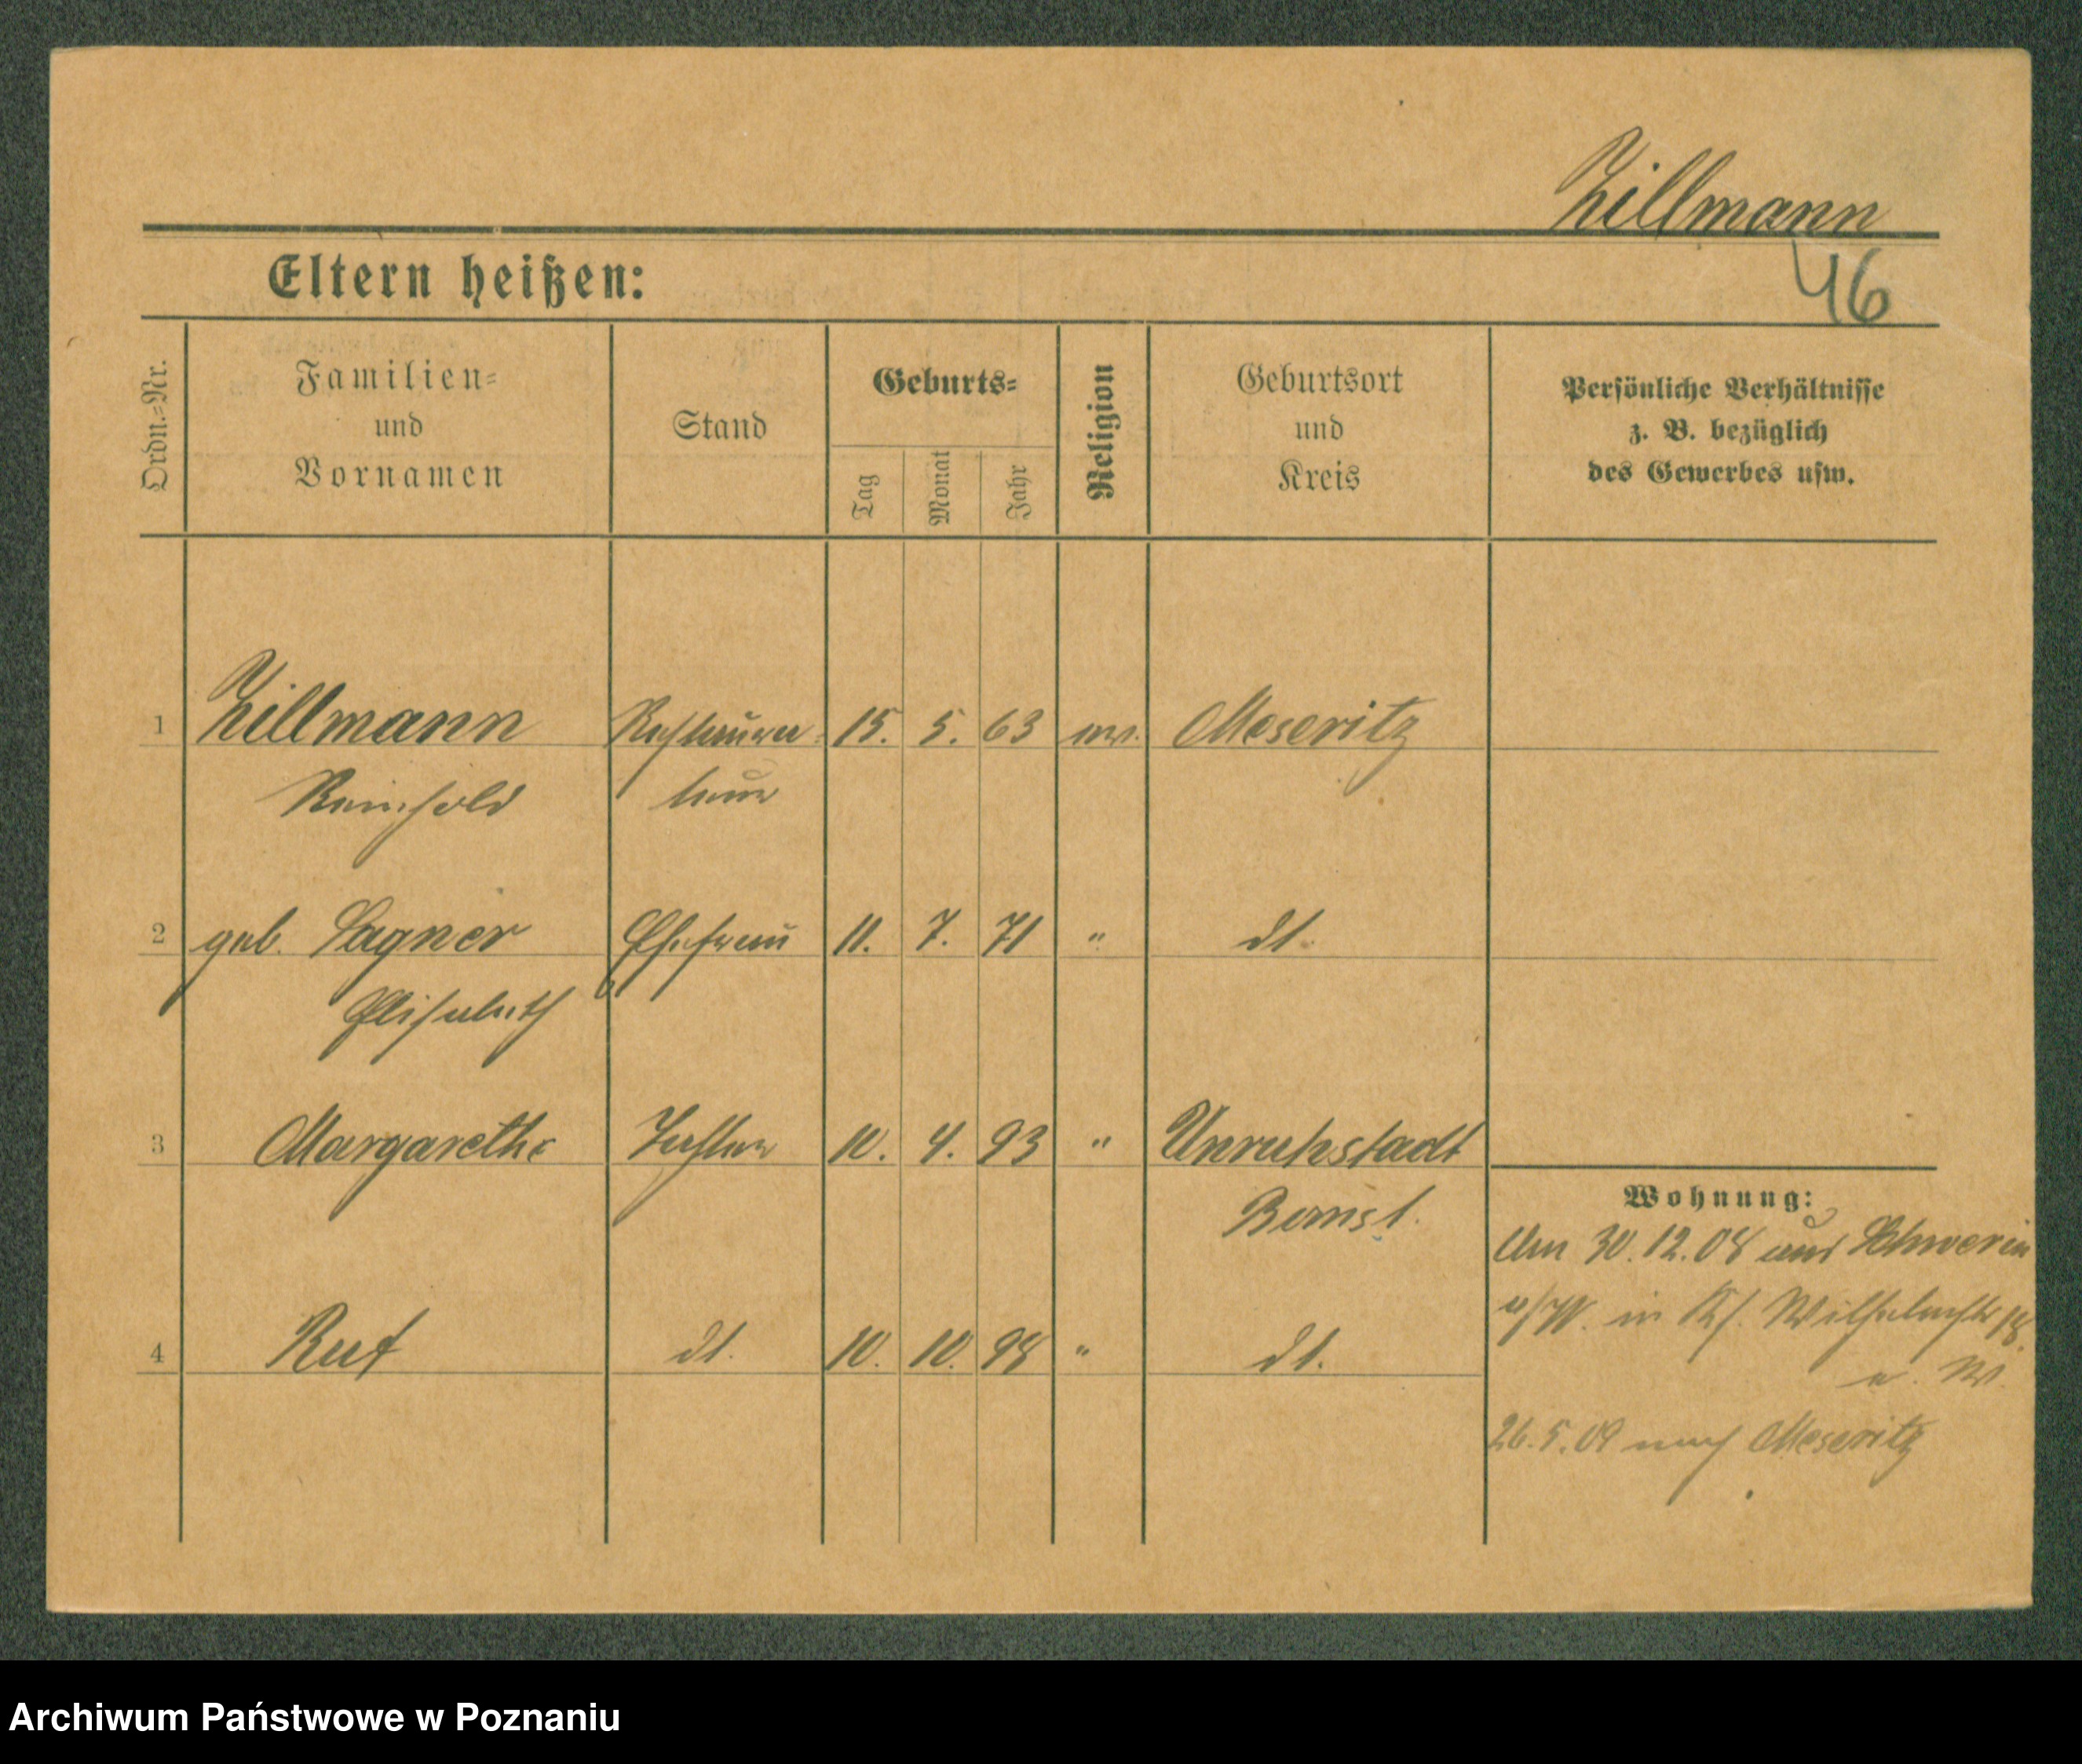 Zillmann
46
Eltern heißen:
Ordn.-Nr.
Familien-
und
Vornamen
Stand
Geburts-
Tag
Monat
Jahr
Religion
Geburtsort
und
Kreis
Persönliche Verhältnisse
z. B. bezüglich
des Gewerbes usw.
1 Zillmann Restaura- 15. 5. 63 ev. Meseritz
Reinhold teur
2 geb. Sagner Ehefrau 11. 7. 71 " dt.
Elisabeth
3 Margarethe Tochter 10. 4. 93 " Unruhstadt
Bomst.
4 Rut dt. 10. 10. 98 " dt.
Wohnung:
Am 30.12.08 aus Schwerin
a/W. in Wilhelmstr 18.
26.5.09 nach Meseritz
Archiwum Państwowe w Poznaniu